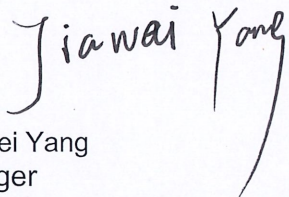 Jiawei Yang
ei Yang
ger